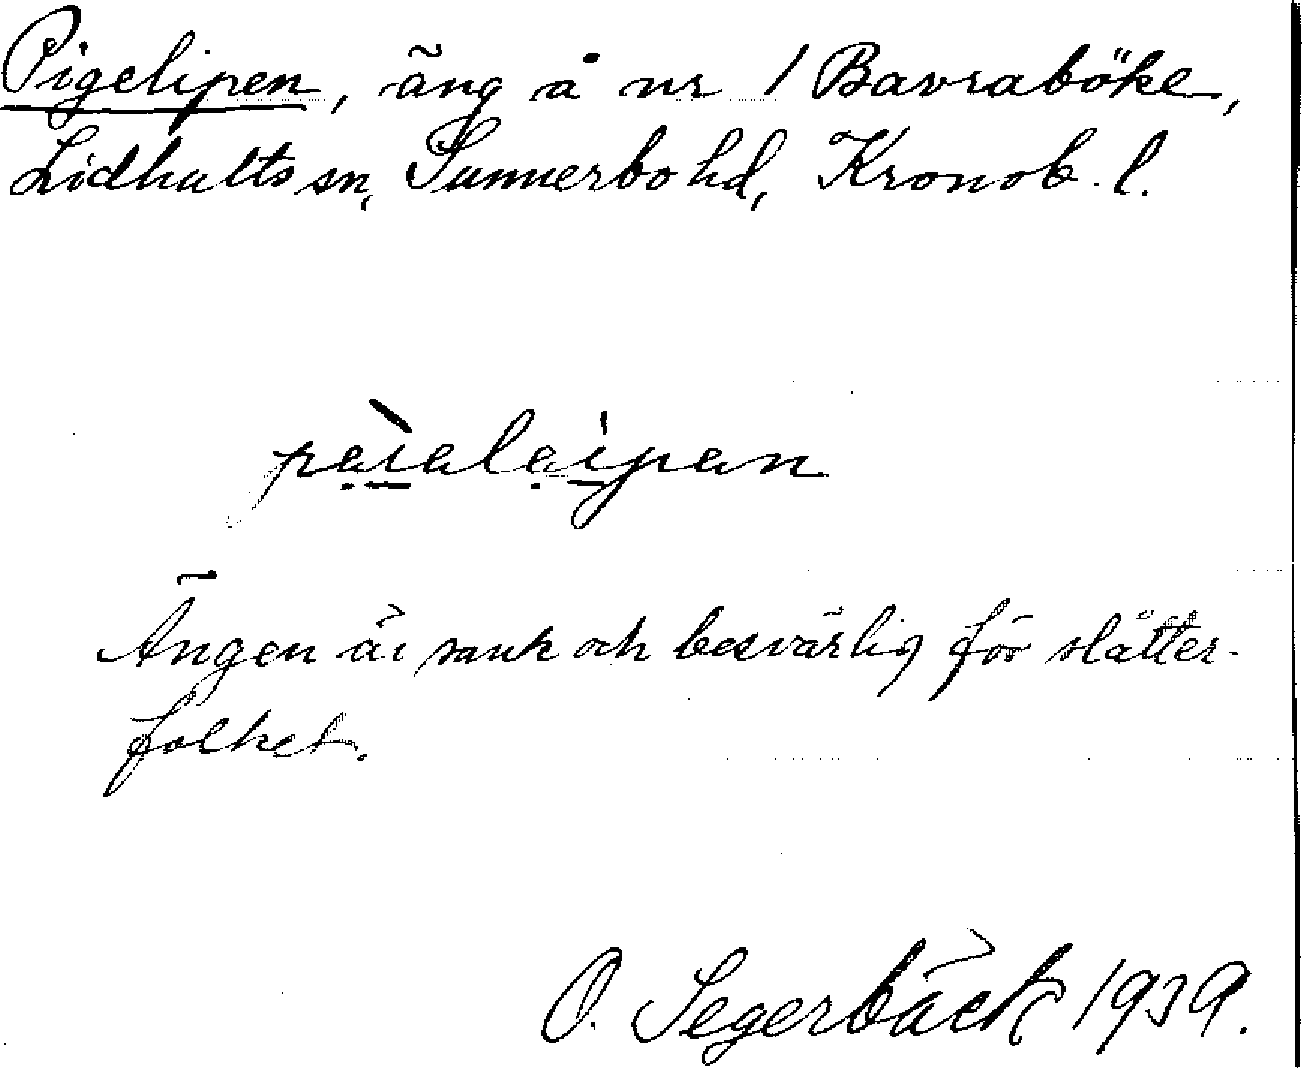 Pigelipen, äng å nr 1 Bavraböke,
Lidhults sn, Sunnerbo hd, Kronob. l.
Ängen är sank och besvärlig för slåtter-
folket.
O. Segerbäck 1939.